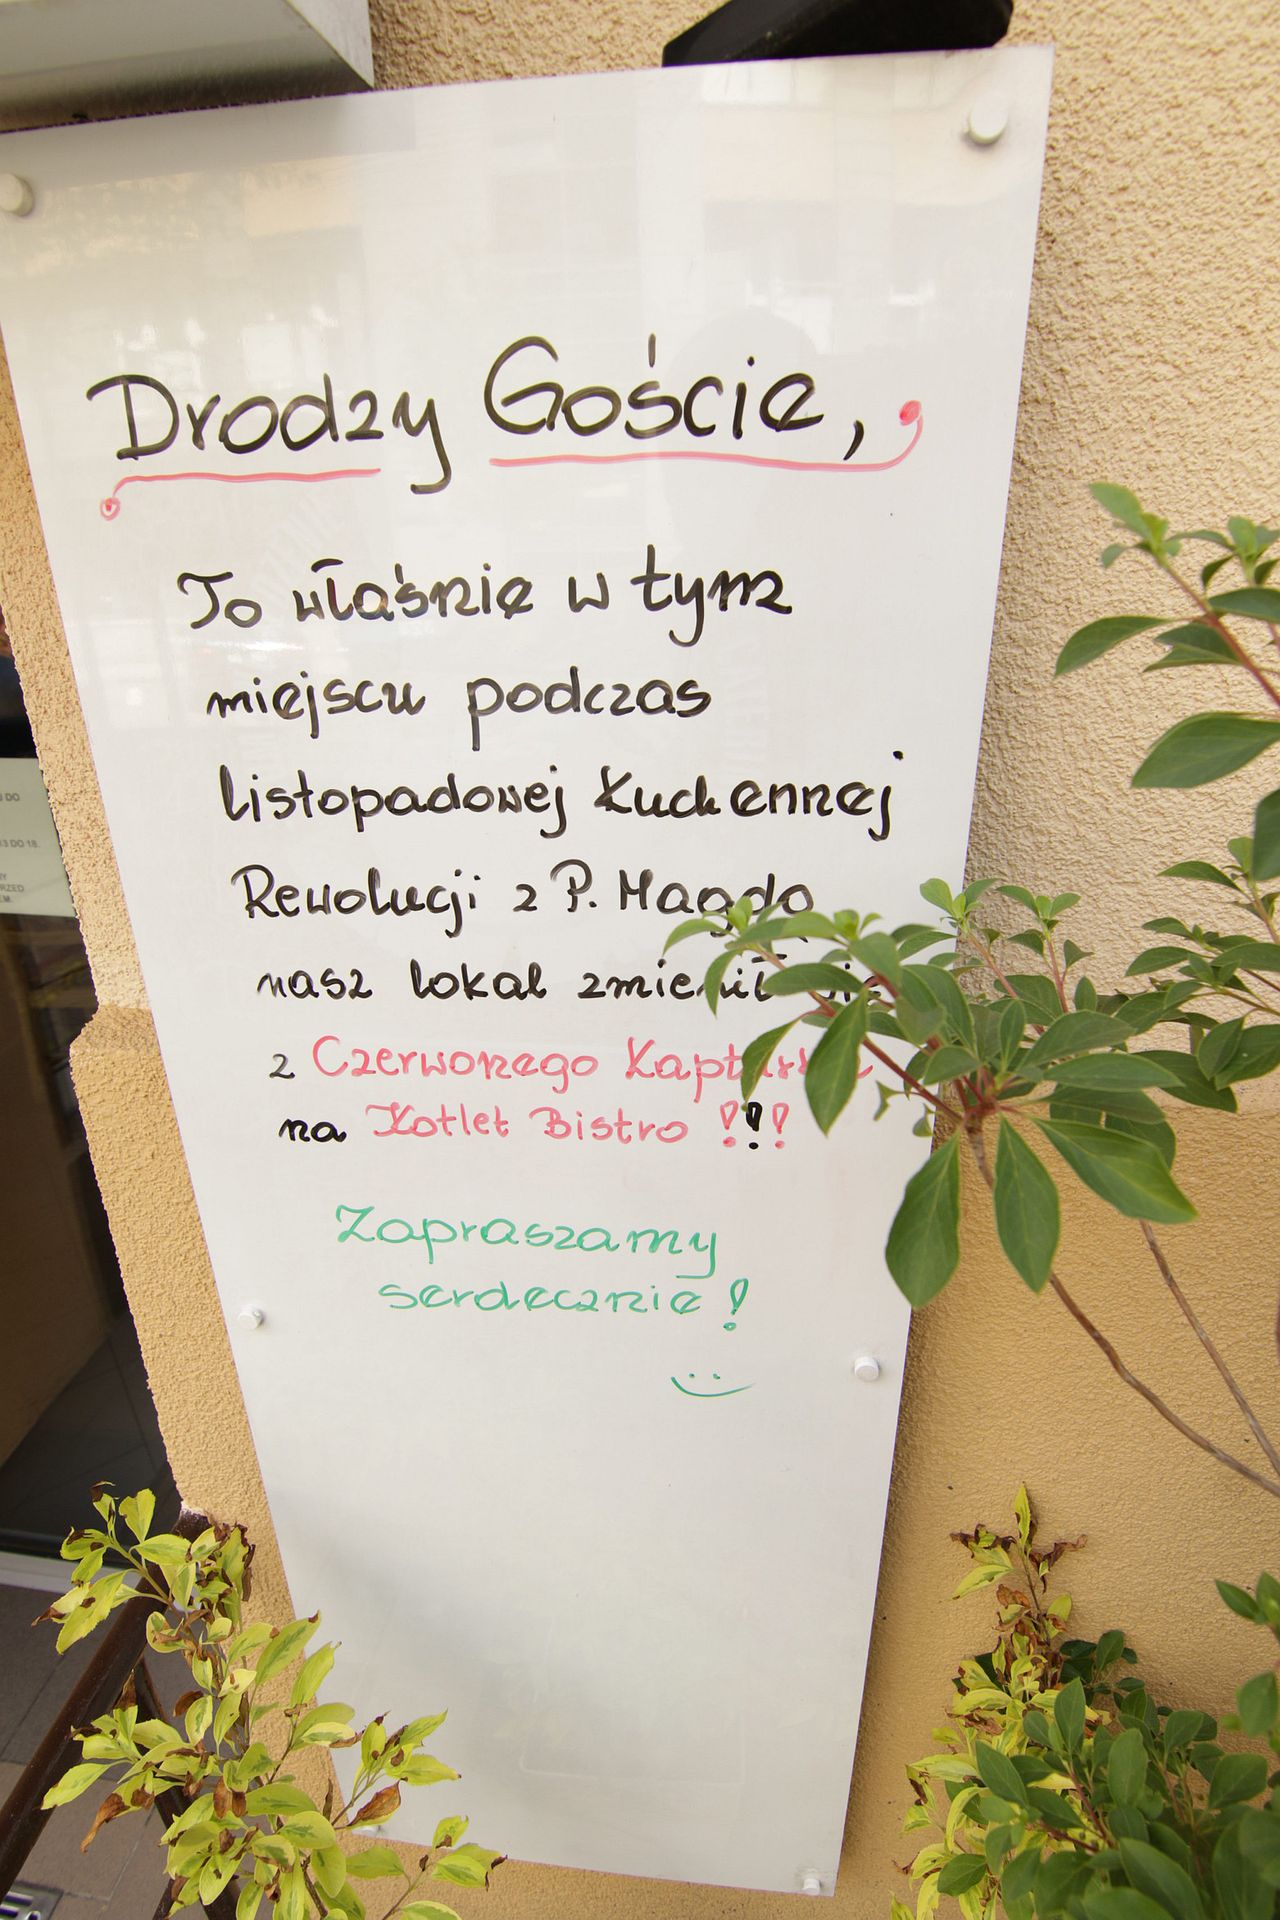 Drodzy Goście,
To właśnie w tym
miejscu podczas
listopadowej Kuchennej
Rewolucji z P. Magdą
nasz lokal zmienił się
z Czerwonego Kapturka
na Kotlet Bistro !!!
Zapraszamy
serdecznie!